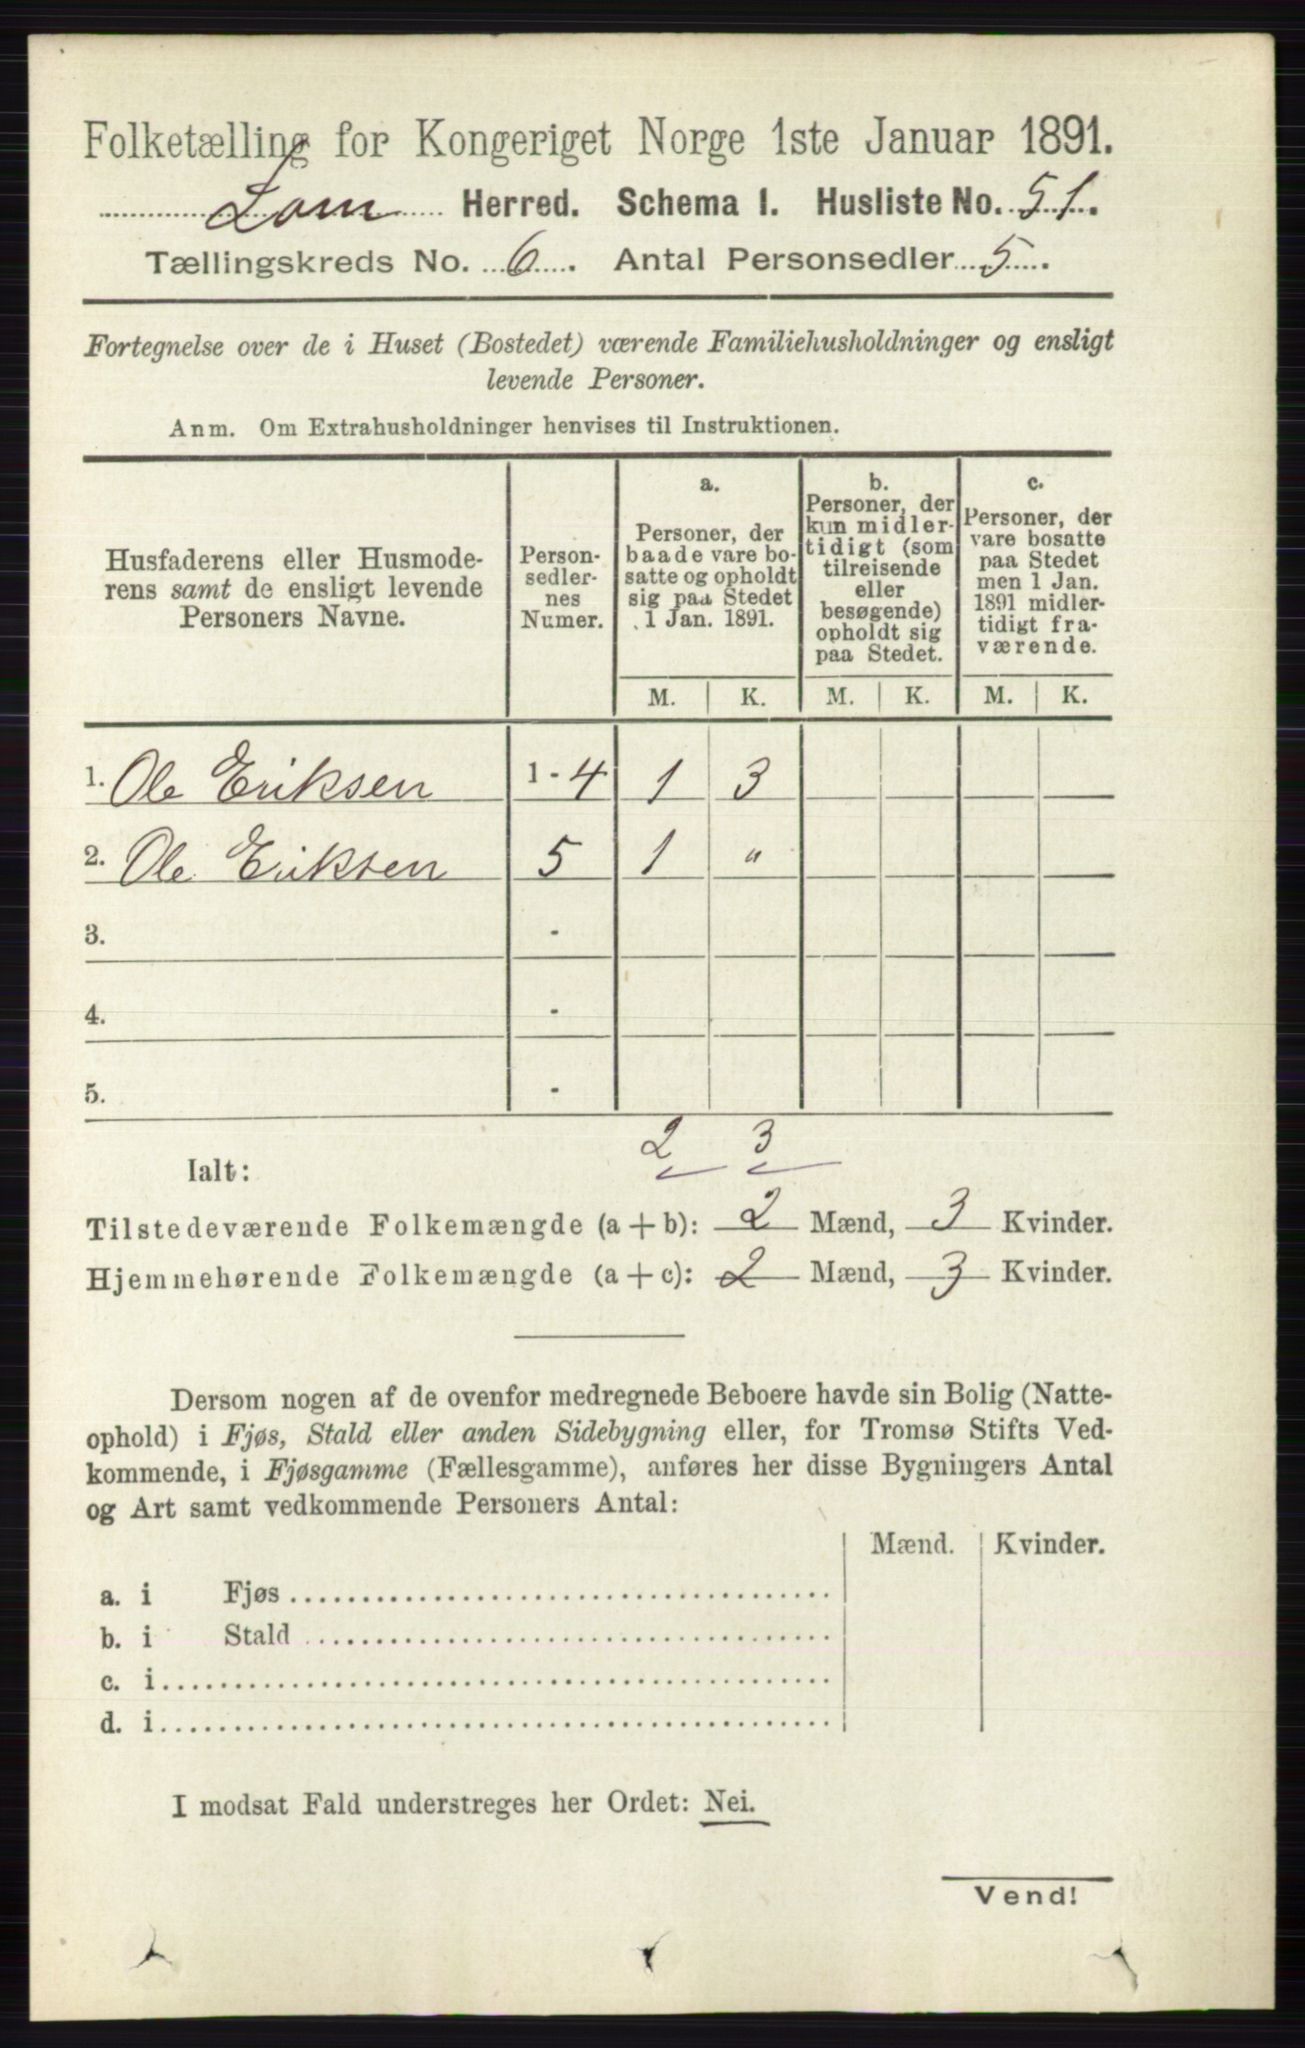 Folketælling for Kongeriget Norge 1ste Januar 1891.
Lom Herred. Schema 1. Husliste No. 51.
Tællingskreds No. 6. Antal Personsedler 5.
Fortegnelse over de i Huset (Bostedet) værende Familiehusholdninger og ensligt
levende Personer.
Anm. Om Extrahusholdninger henvises til Instruktionen.
Husfaderens eller Husmode-
rens samt de ensligt levende
Personers Navne.
Person-
sedler-
nes
Numer.
a.
Personer, der
baade vare bo-
satte og opholdt
sig paa Stedet
1 Jan. 1891.
b.
Personer, der
kun midler-
tidigt (som
tilreisende
eller
besøgende)
opholdt sig
paa Stedet.
c.
Personer, der
vare bosatte
paa Stedet
men 1 Jan.
1891 midler-
tidigt fra-
værende.
M. K. M. K. M. K.
1. Ole Eriksen 1 - 4 1 3
2. Ole Eriksen 5 1 "
3. -
4. -
5. -
2 3
Ialt:
Tilstedeværende Folkemængde (a + b): 2 Mænd, 3 Kvinder.
Hjemmehørende Folkemængde (a + c): 2 Mænd, 3 Kvinder.
Dersom nogen af de ovenfor medregnede Beboere havde sin Bolig (Natte-
ophold) i Fjøs, Stald eller anden Sidebygning eller, for Tromsø Stifts Ved-
kommende, i Fjøsgamme (Fællesgamme), anføres her disse Bygningers Antal
og Art samt vedkommende Personers Antal:
Mænd. Kvinder.
a. i Fjøs
b. i Stald
c. i
d. i
I modsat Fald understreges her Ordet: Nei.
Vend!